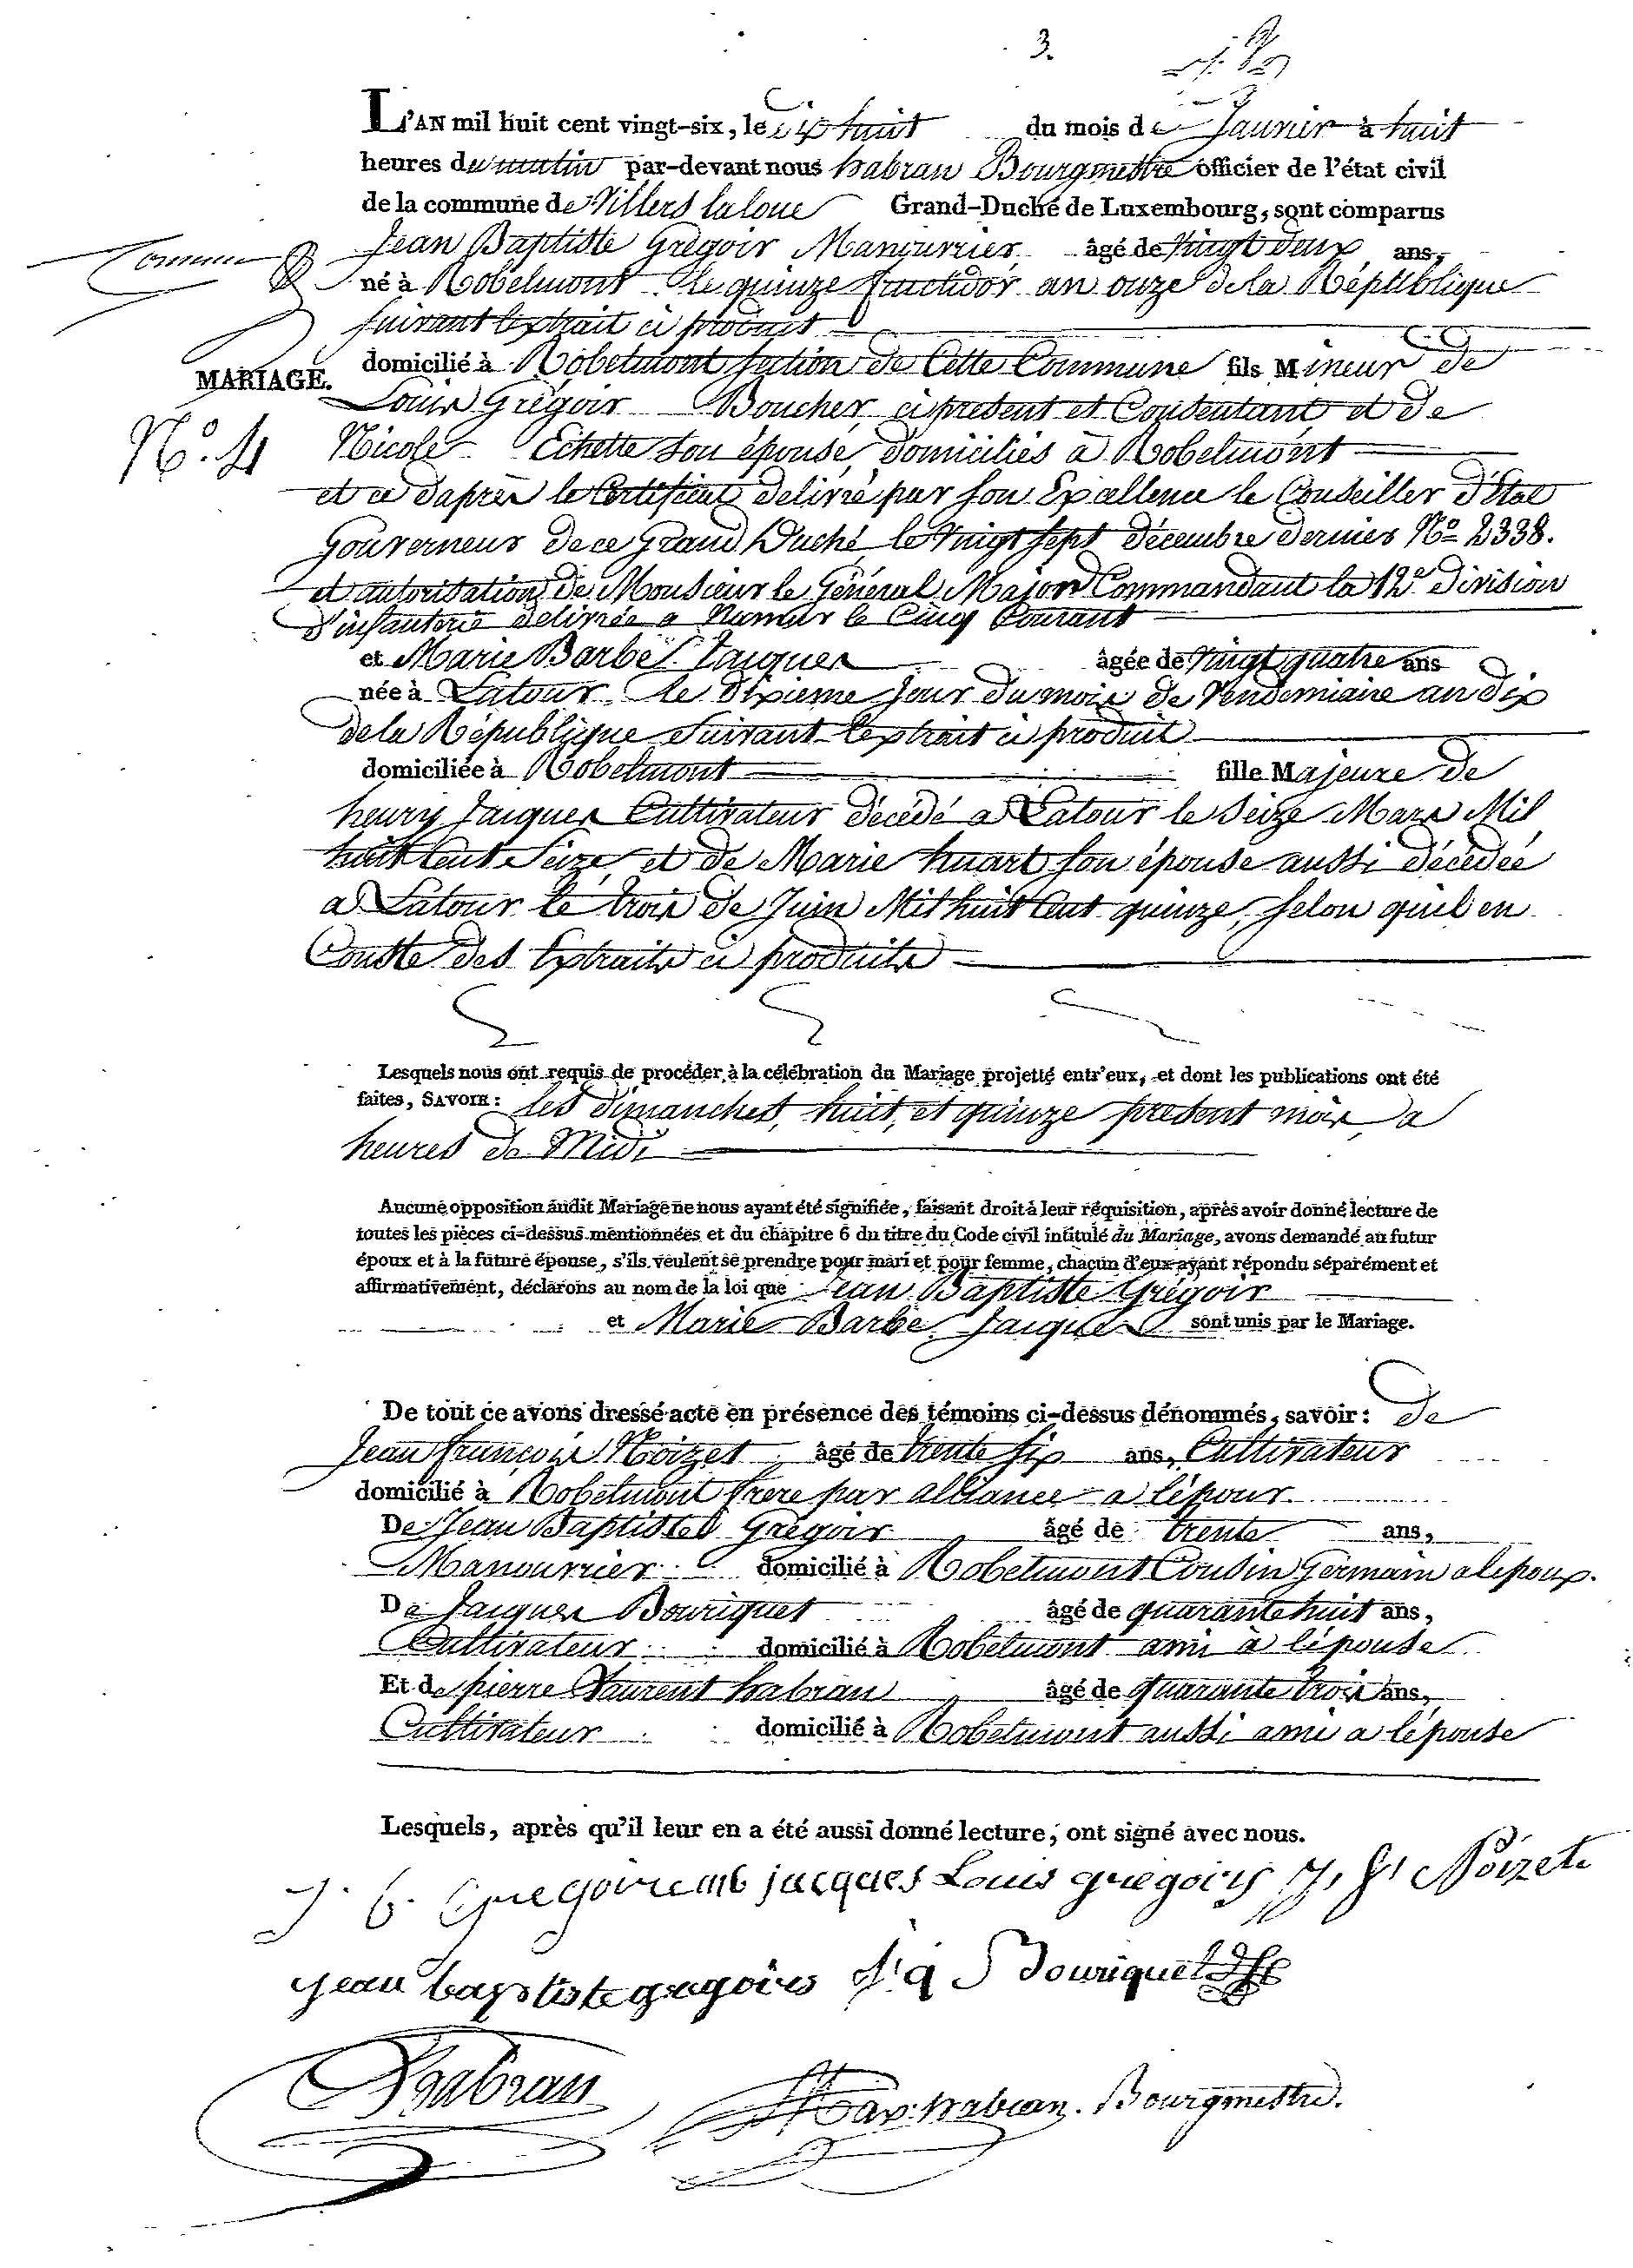 3.
L'AN mil huit cent vingt-six, le dix huit du mois de Janvier à huit
heures du matin par-devant nous habran Bourgmestre officier de l'état civil
de la commune de Villers laloue Grand-Duché de Luxembourg, sont comparus
Jean Baptiste Grégoir Manouvrier âgé de vingt deux ans,
né à Robelmont le quinze fructidor an onze de la République
suivant l'extrait ci produit
MARIAGE.
domicilié à Robelmont section de Cette Commune fils Mineur de
Louis Grégoir Boucher, ci present et Consentant, et de
N.º 4
Nicole Echette son épouse, domiciliés à Robelmont
et ce daprès le Certificat delivré par son Excellence le Conseiller d'État
Gouverneur de ce Grand Duché le vingt sept décembre dernier Nº 2338.
et autorisation de Monsieur le Général Major Commandant la 12e division
d'infanterie delivrée a Namur le Cinq Courant
et Marie Barbe Jacques âgée de vingt quatre ans
née à Latour le dixieme jour du mois de Vendemiaire an dix
de la République suivant l'extrait ci produit
domiciliée à Robelmont fille Majeure de
henry Jacques Cultivateur décédé a Latour le seize Mars Mil
huit Cent Seize, et de Marie huart son épouse aussi décédée
a Latour le trois de Juin Mil huit Cent quinze, selon quil en
Conste des Extraits ci produits
Lesquels nous ont requis de procéder à la célébration du Mariage projetté entr'eux, et dont les publications ont été
faites, SAVOIR : les dimanches, huit, et quinze present mois, a
heures de Midi
Aucune opposition audit Mariage ne nous ayant été signifiée, faisant droit à leur réquisition, après avoir donné lecture de
toutes les pièces ci-dessus mentionnées et du chapitre 6 du titre du Code civil intitulé du Mariage, avons demandé au futur
époux et à la future épouse, s'ils veulent se prendre pour mari et pour femme, chacun d'eux ayant répondu séparément et
affirmativement, déclarons au nom de la loi que Jean Baptiste Grégoir
et Marie Barbe Jacques sont unis par le Mariage.
De tout ce avons dressé acte en présence des témoins ci-dessus dénommés, savoir : de
Jean françois Noizet âgé de trente six ans, Cultivateur
domicilié à Robelmont frere par alliance a lépoux
De Jean Baptiste Grégoir âgé de trente ans,
Manouvrier domicilié à Robelmont Cousin Germain a lépoux.
De Jacques Bouriquet âgé de quarante huit ans,
Cultivateur domicilié à Robelmont ami à lépouse
Et de pierre Laurent habran âgé de quarante trois ans,
Cultivateur domicilié à Robelmont aussi ami a lépouse
Lesquels, après qu'il leur en a été aussi donné lecture, ont signé avec nous.
J. b. Gregoire mb jacques Louis gregoirs J, f, Noizet
jean baptiste gregoirs Bouriquet
habran
habran. Bourgmestre.